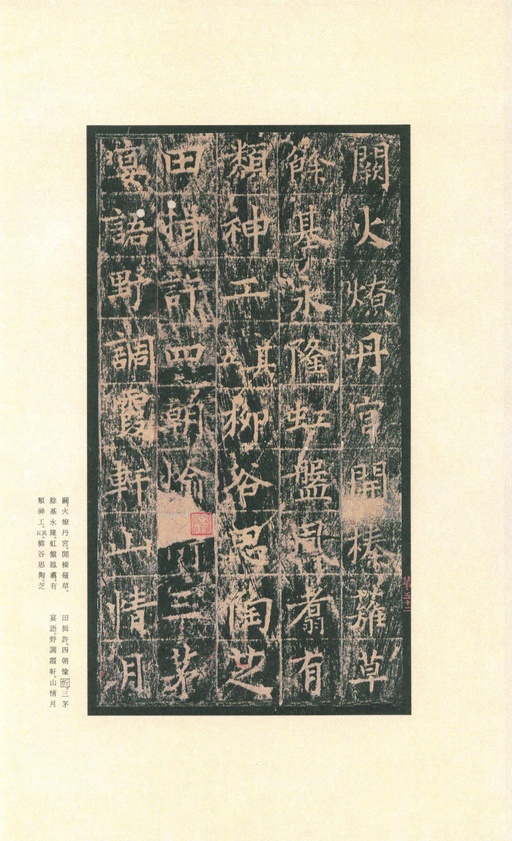 闕火燎丹宮開榛蕹草
餘基永隆虹盤鳳翥有
類神工其五柳谷思陶芝
田情許四朝愉三茅
宴語野調霞軒山情月
闕火燎丹宮開榛蕹草
餘基永隆虹盤鳳翥有
類神工柳谷思陶芝
田情許四朝愉三茅
宴語野調霞軒山情月